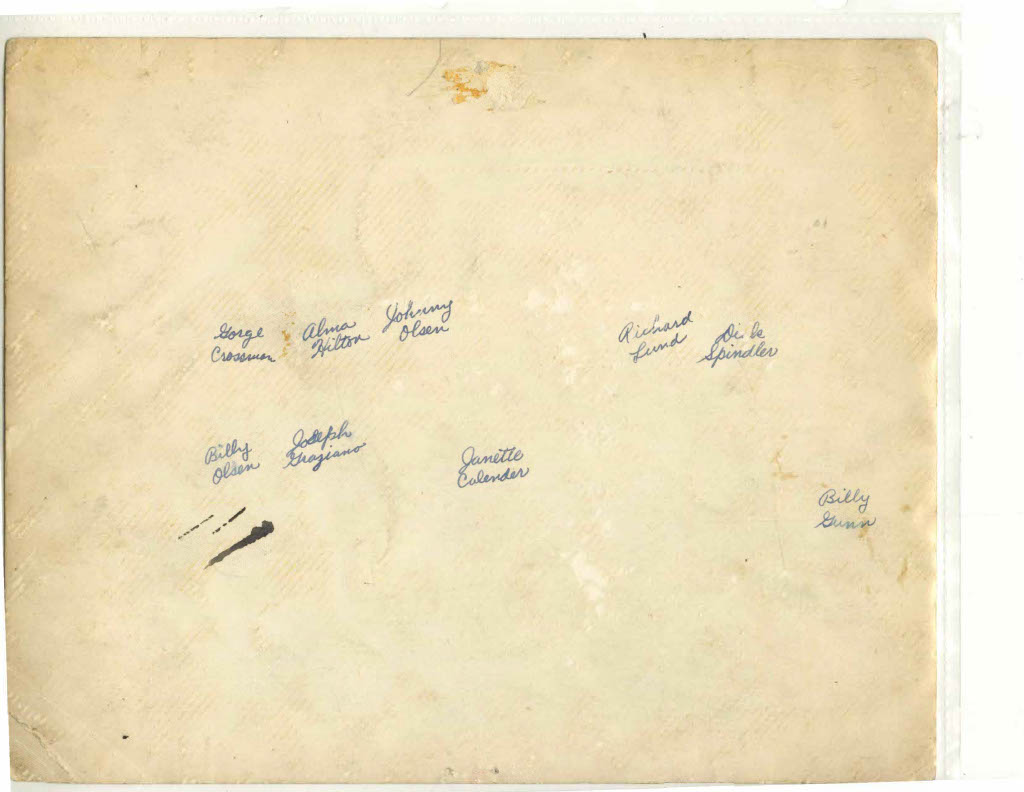 Gorge
Crossman
Alma
Hilton
Johnny
Olsen
Richard
Lund
Dick
Spindler
Billy
Olsen
Joseph
Graziano
Janette
Calender
Billy
Gunn